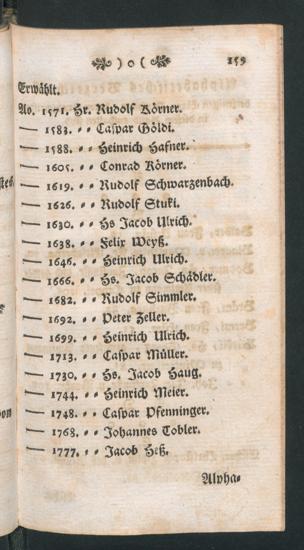 ) o ( 159
Erwählt.
Ao. 1571. Hr. Rudolf Körner.
— 1583. = = Caspar Göldi.
— 1588. = = Heinrich Hafner.
— 1605. = = Conrad Körner.
— 1619. = = Rudolf Schwarzenbach.
— 1626. = = Rudolf Stuki.
— 1630. = = Hs Jacob Ulrich.
— 1638. = = Felix Weyß.
— 1646. = = Heinrich Ulrich.
— 1666. = = Hs. Jacob Schädler.
— 1682. = = Rudolf Simmler.
— 1692. = = Peter Zeller.
— 1699. = = Heinrich Ulrich.
— 1713. = = Caspar Müller.
— 1730. = = Hs. Jacob Haug.
— 1744. = = Heinrich Meier.
— 1748. = = Caspar Pfenninger.
— 1768. = = Johannes Tobler.
— 1777. = = Jacob Heß.
Alpha=